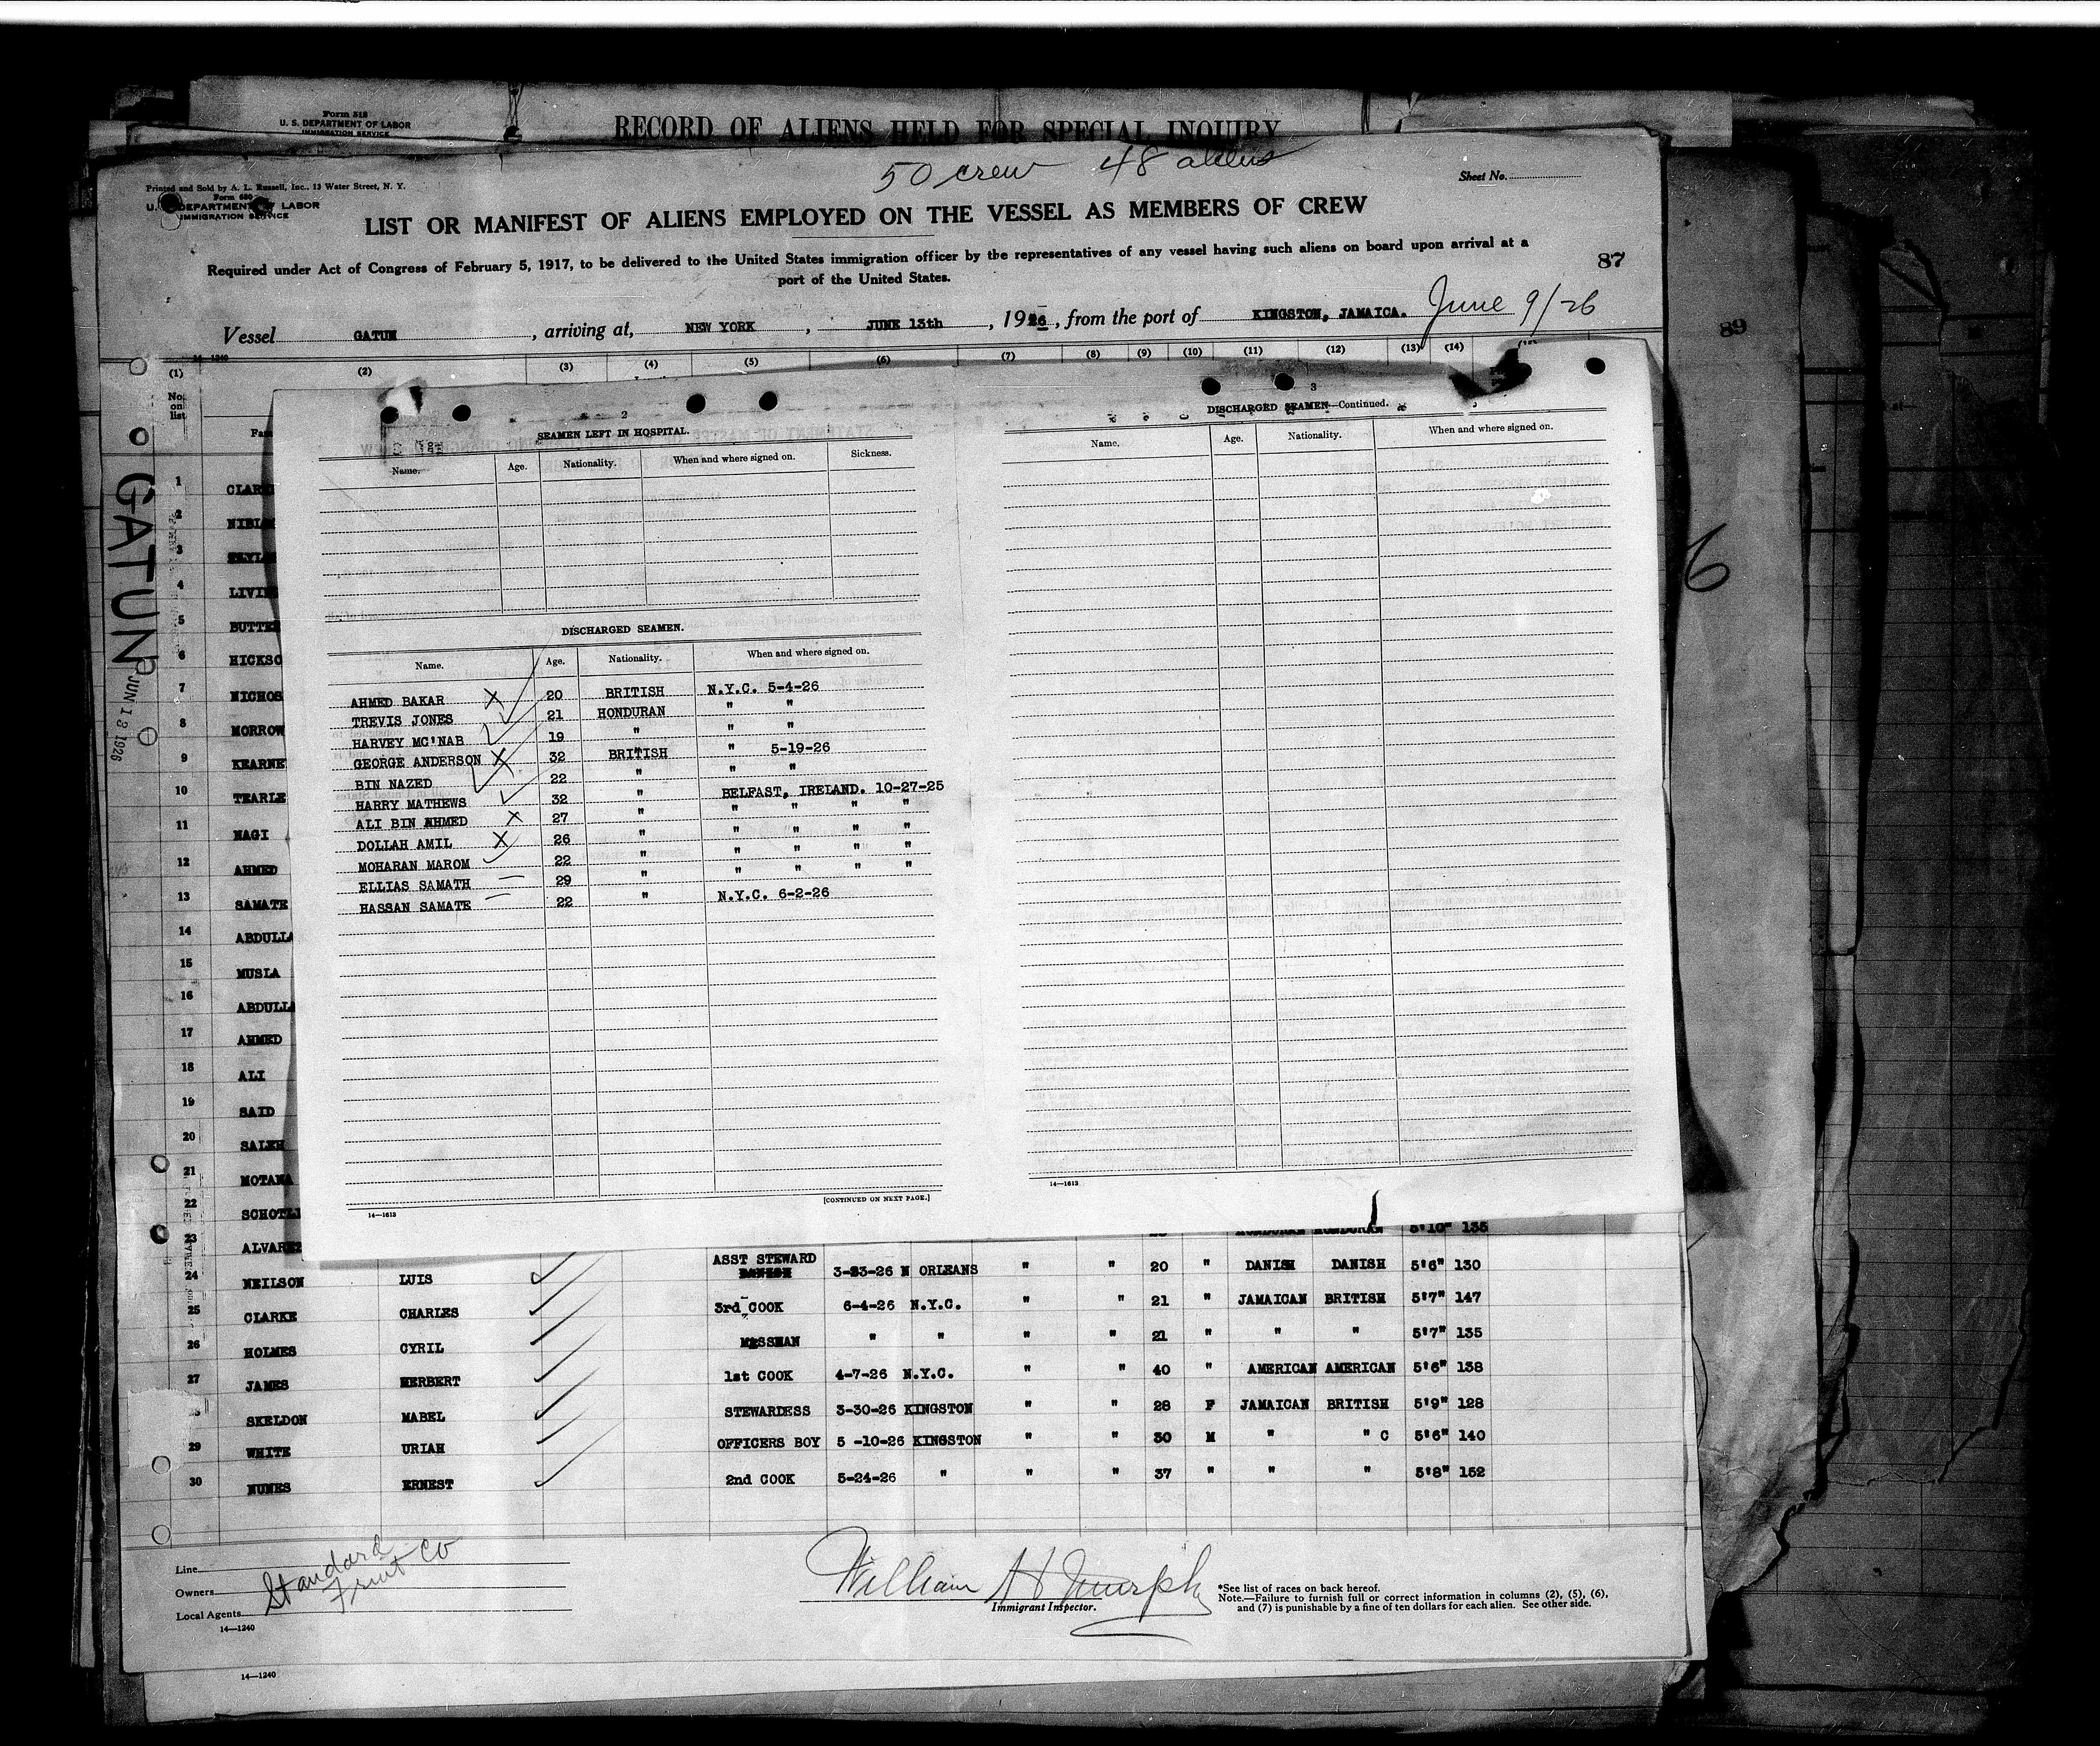 Form 518
U. S. DEPARTMENT OF LABOR
IMMIGRATION SERVICE
RECORD OF ALIENS HELD FOR SPECIAL INQUIRY
50 crew 48 aliens
Printed and Sold by A. L. Russell, Inc., 13 Water Street, N. Y.
Form 680
U. S. DEPARTMENT OF LABOR
IMMIGRATION SERVICE
Sheet No.
LIST OR MANIFEST OF ALIENS EMPLOYED ON THE VESSEL AS MEMBERS OF CREW
Required under Act of Congress of February 5, 1917, to be delivered to the United States immigration officer by the representatives of any vessel having such aliens on board upon arrival at a
port of the United States.
87
Vessel GATUN, arriving at, NEW YORK, JUNE 13th, 1926, from the port of KINGSTON, JAMAICA. June 9/26
89
14—1240
(1) (2) (3) (4) (5) (6) (7) (8) (9) (10) (11) (12) (13) (14)
No. on list
GATUN
JUN 13 1926
6
2
SEAMEN LEFT IN HOSPITAL.
Name. Age. Nationality. When and where signed on. Sickness.
DISCHARGED SEAMEN.
Name. Age. Nationality. When and where signed on.
AHMED BAKAR X 20 BRITISH N.Y.C. 5-4-26
TREVIS JONES 21 HONDURAN " "
HARVEY MC'NAB 19 " " "
GEORGE ANDERSON X 32 BRITISH " 5-19-26
BIN NAZED 22 " " "
HARRY MATHEWS 32 " BELFAST, IRELAND. 10-27-25
ALI BIN AHMED X 27 " " " " "
DOLLAH AMIL X 26 " " " " "
MOHARAN MAROM 22 " " " " "
ELLIAS SAMATH 29 " " " " "
HASSAN SAMATE 22 " N.Y.C. 6-2-26
[CONTINUED ON NEXT PAGE.]
14—1613
3
DISCHARGED SEAMEN—Continued.
Name. Age. Nationality. When and where signed on.
14—1613
1 CLAR
2
3
4 LIVI
5 BUTTE
6 HICKSO
7 NICHOS
8 MORROW
9 KEARNE
10 TEARLE
11 NAGI
12 AHMED
13 SAMATE
14 ABDULLA
15 MUSLA
16 ABDULLA
17 AHMED
18 ALI
19 SAID
20 SALEH
21 MOTANA
22 SCHOTLI
23 ALVAREZ HONDURAN HONDURAN 5'10" 135
24 NEILSON LUIS ASST STEWARD 3-23-26 N ORLEANS " " 20 " DANISH DANISH 5'6" 130
25 CLARKE CHARLES 3rd COOK 6-4-26 N.Y.C. " " 21 " JAMAICAN BRITISH 5'7" 147
26 HOLMES CYRIL MESSMAN " " " " 21 " " " 5'7" 135
27 JAMES HERBERT 1st COOK 4-7-26 N.Y.C. " " 40 " AMERICAN AMERICAN 5'6" 138
SKELDON MABEL STEWARDESS 3-30-26 KINGSTON " " 28 F JAMAICAN BRITISH 5'9" 128
29 WHITE URIAH OFFICERS BOY 5 -10-26 KINGSTON " " 30 M " " C 5'6" 140
30 NUNES ERNEST 2nd COOK 5-24-26 " " " 37 " " " 5'8" 152
Line
Owners Standard Fruit Co
Local Agents
14—1240
William H Murphy
Immigrant Inspector.
*See list of races on back hereof.
Note.—Failure to furnish full or correct information in columns (2), (5), (6),
and (7) is punishable by a fine of ten dollars for each alien. See other side.
14—1240